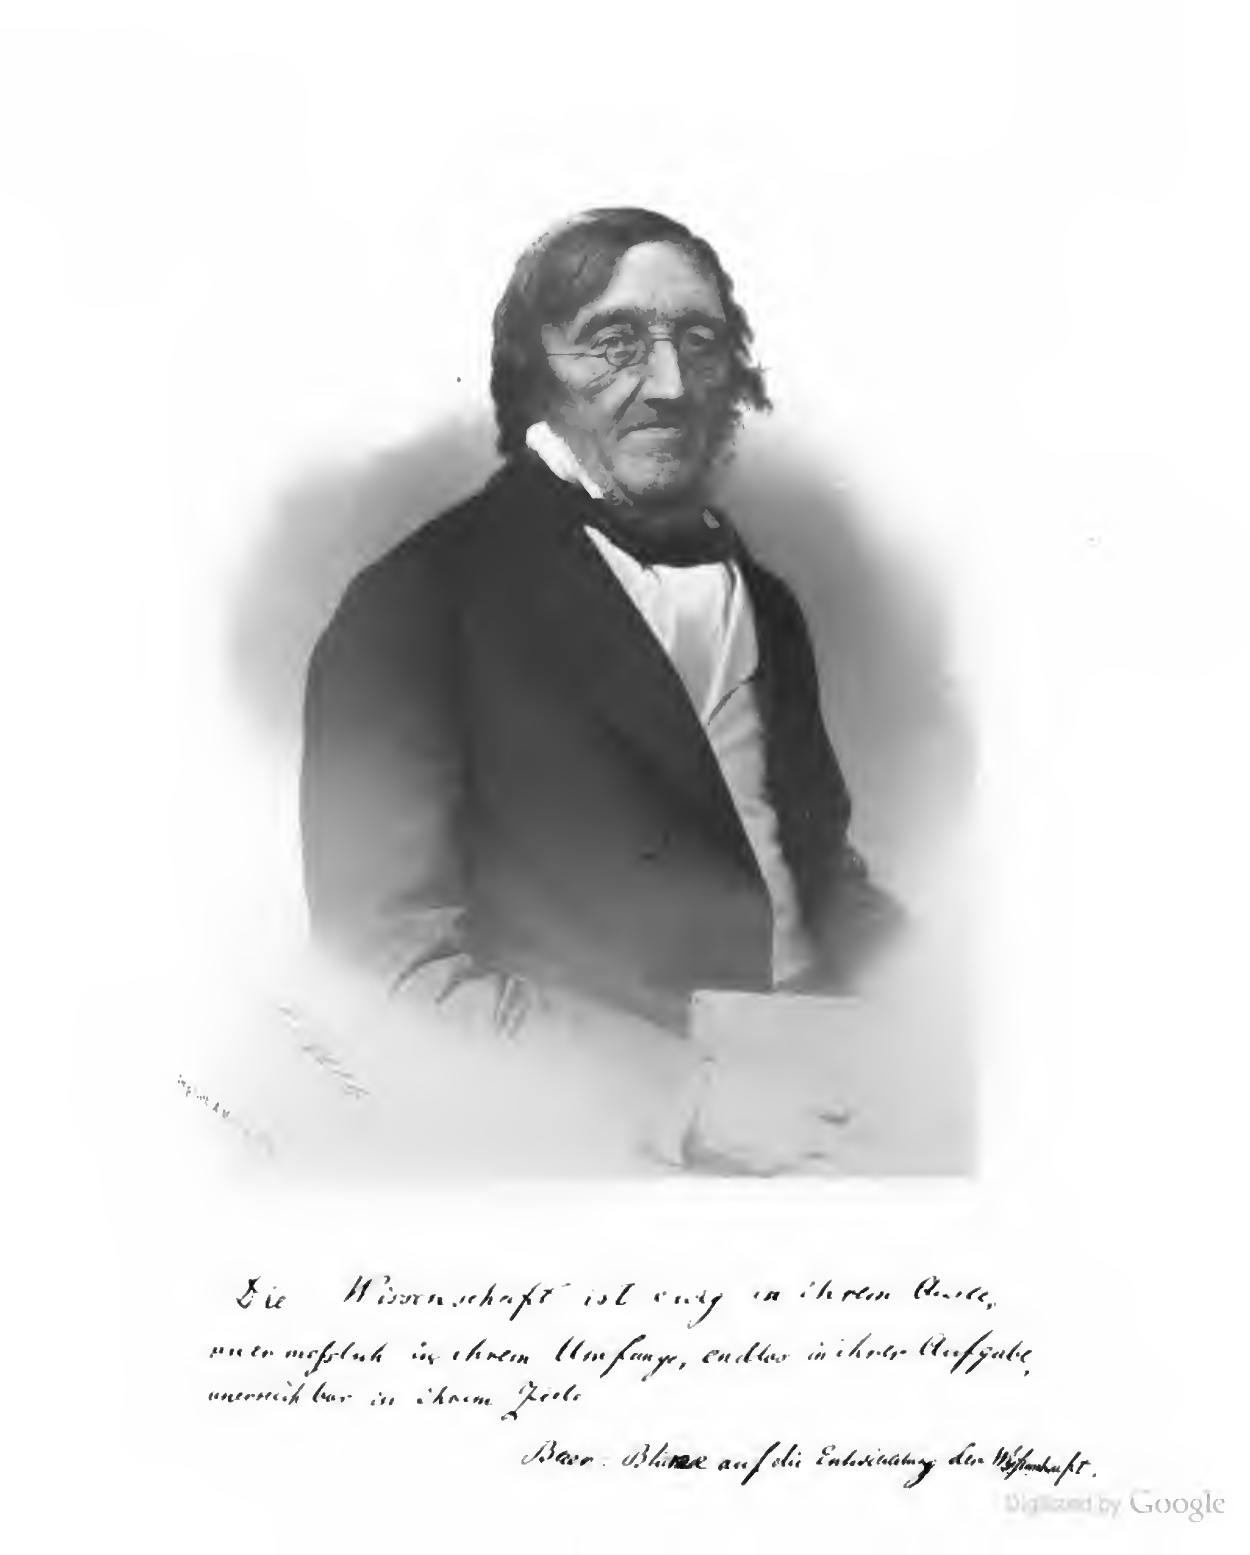 Die Wissenschaft ist ewig in ihrem Quell,
unermesslich in ihrem Umfange, endlos in ihrer Aufgabe,
unerreichbar in ihrem Ziele
Baer. Blicke auf die Entwicklung der Wissenschaft.
Digitized by Google